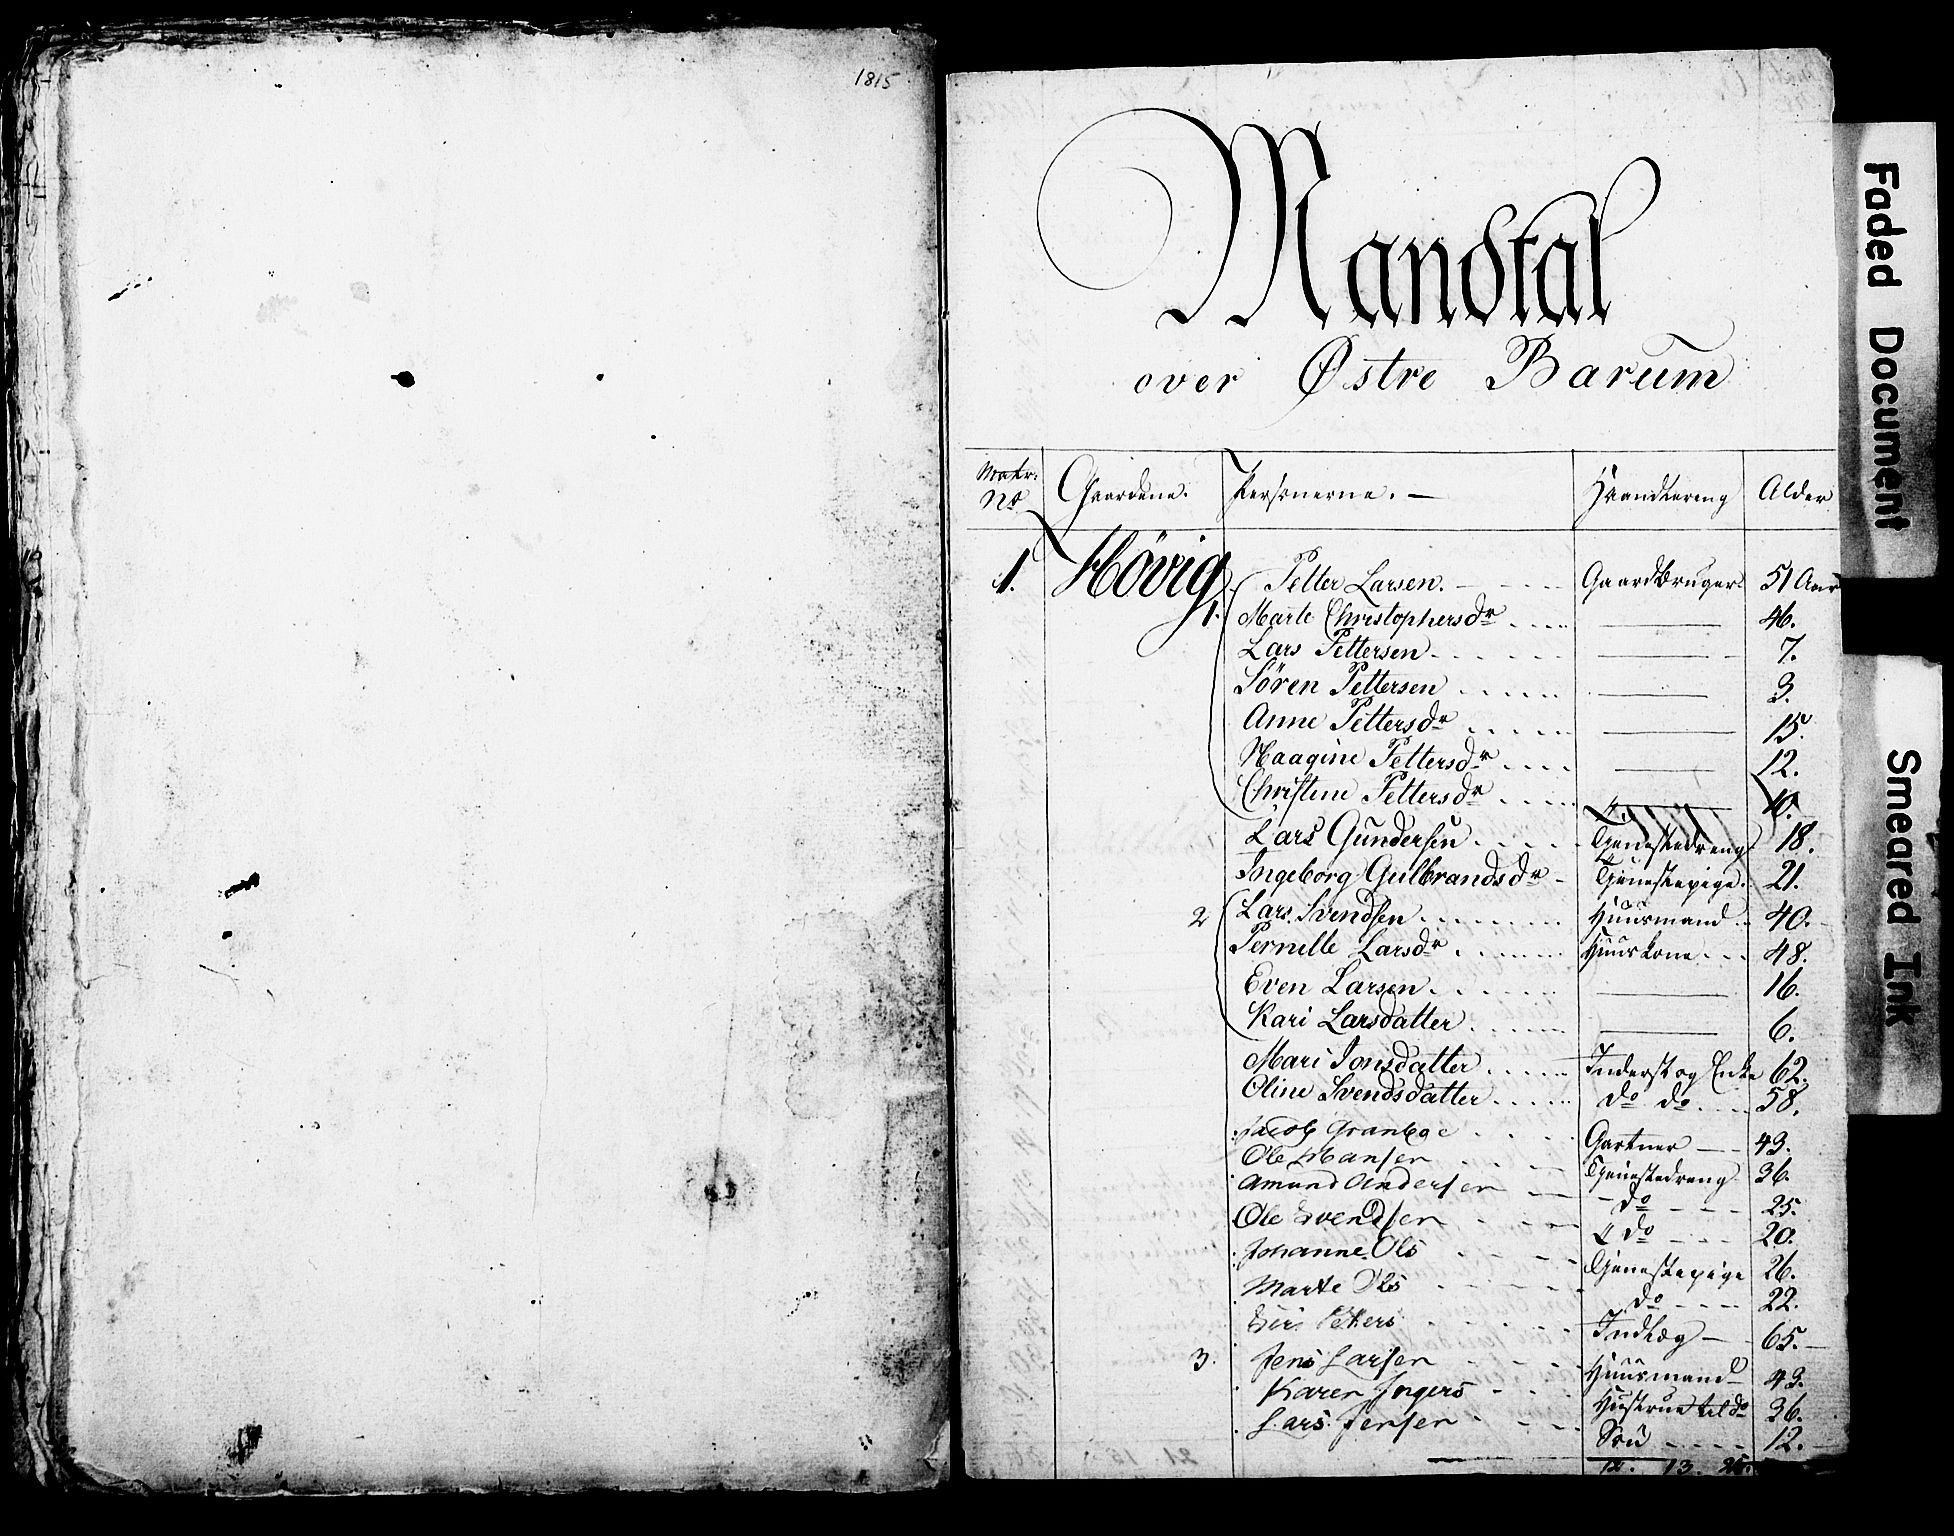 1815
Mandtal
over Østre Barum
Matr: No Gaardene. Personerne. — Haandtering Alder
1. Hövig 1. Petter Larsen. Gaardbruger 51 Aar
Marte Christophersdr 46.
Lars Pettersen 7.
Sören Pettersen 3.
Anne Pettersdr 15.
Haagine Pettersdr 12.
Christine Pettersdr 10.
Lars Gundersen Tjenestedreng 18.
Ingeborg Gulbrandsdr Tjenestepige 21.
2 Lars Svendsen Huusmand 40.
Pernille Larsdr Huuskone 48.
Even Larsen 16.
Kari Larsdatter 6.
Mari Jonsdatter Inderst og Enke 62.
Oline Svendsdatter do do 58.
Jacob Gartner 43.
Ole Hansen Tjenestedreng 36.
Amund Andersen do 25.
Ole Svendsen do 20.
Johanne Ols Tjenestepige 26.
Marte Ols do 22.
Siri Petters Indlæg 65.
3. Jens Larsen Huusmand 43.
Karen Ingers Hustrue til do 36.
Lars Jensen Søn 12.
12. 13. 25.
Faded Document
Smeared Ink